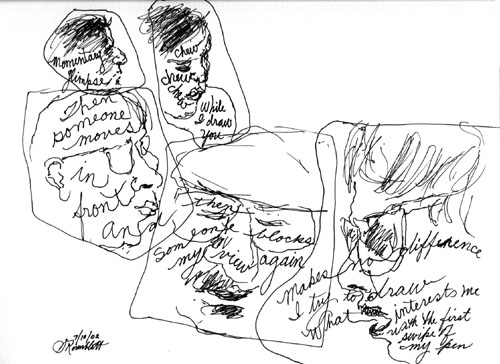 Momentary
Glimpse
Chew
chew
chew
While
I draw
you
Then
someone
moves
in
front
And
then
Someone blocks
my view again
makes no difference
I try to draw
What interests me
with the first
swipe of
my pen
7/10/02